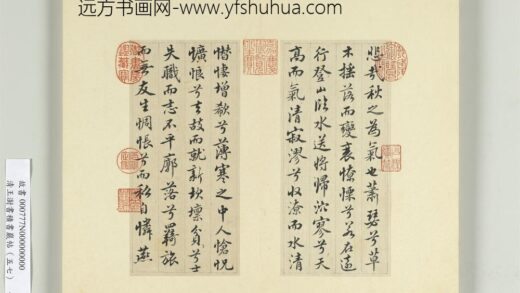 远方书画网-www.yfshuhua.com
悲哉秋之為氣也蕭瑟兮草
木搖落而變衰憭慄兮若在遠
行登山臨水送將歸泬寥兮天
高而氣清寂漻兮收潦而水清
憯悽增欷兮薄寒之中人愴怳
懭悢兮去故而就新坎壈兮貧士
失職而志不平廓落兮羇旅
而無友生惆悵兮而私自憐燕
故書000777N000000000
清王澍書積書巖帖（五七）